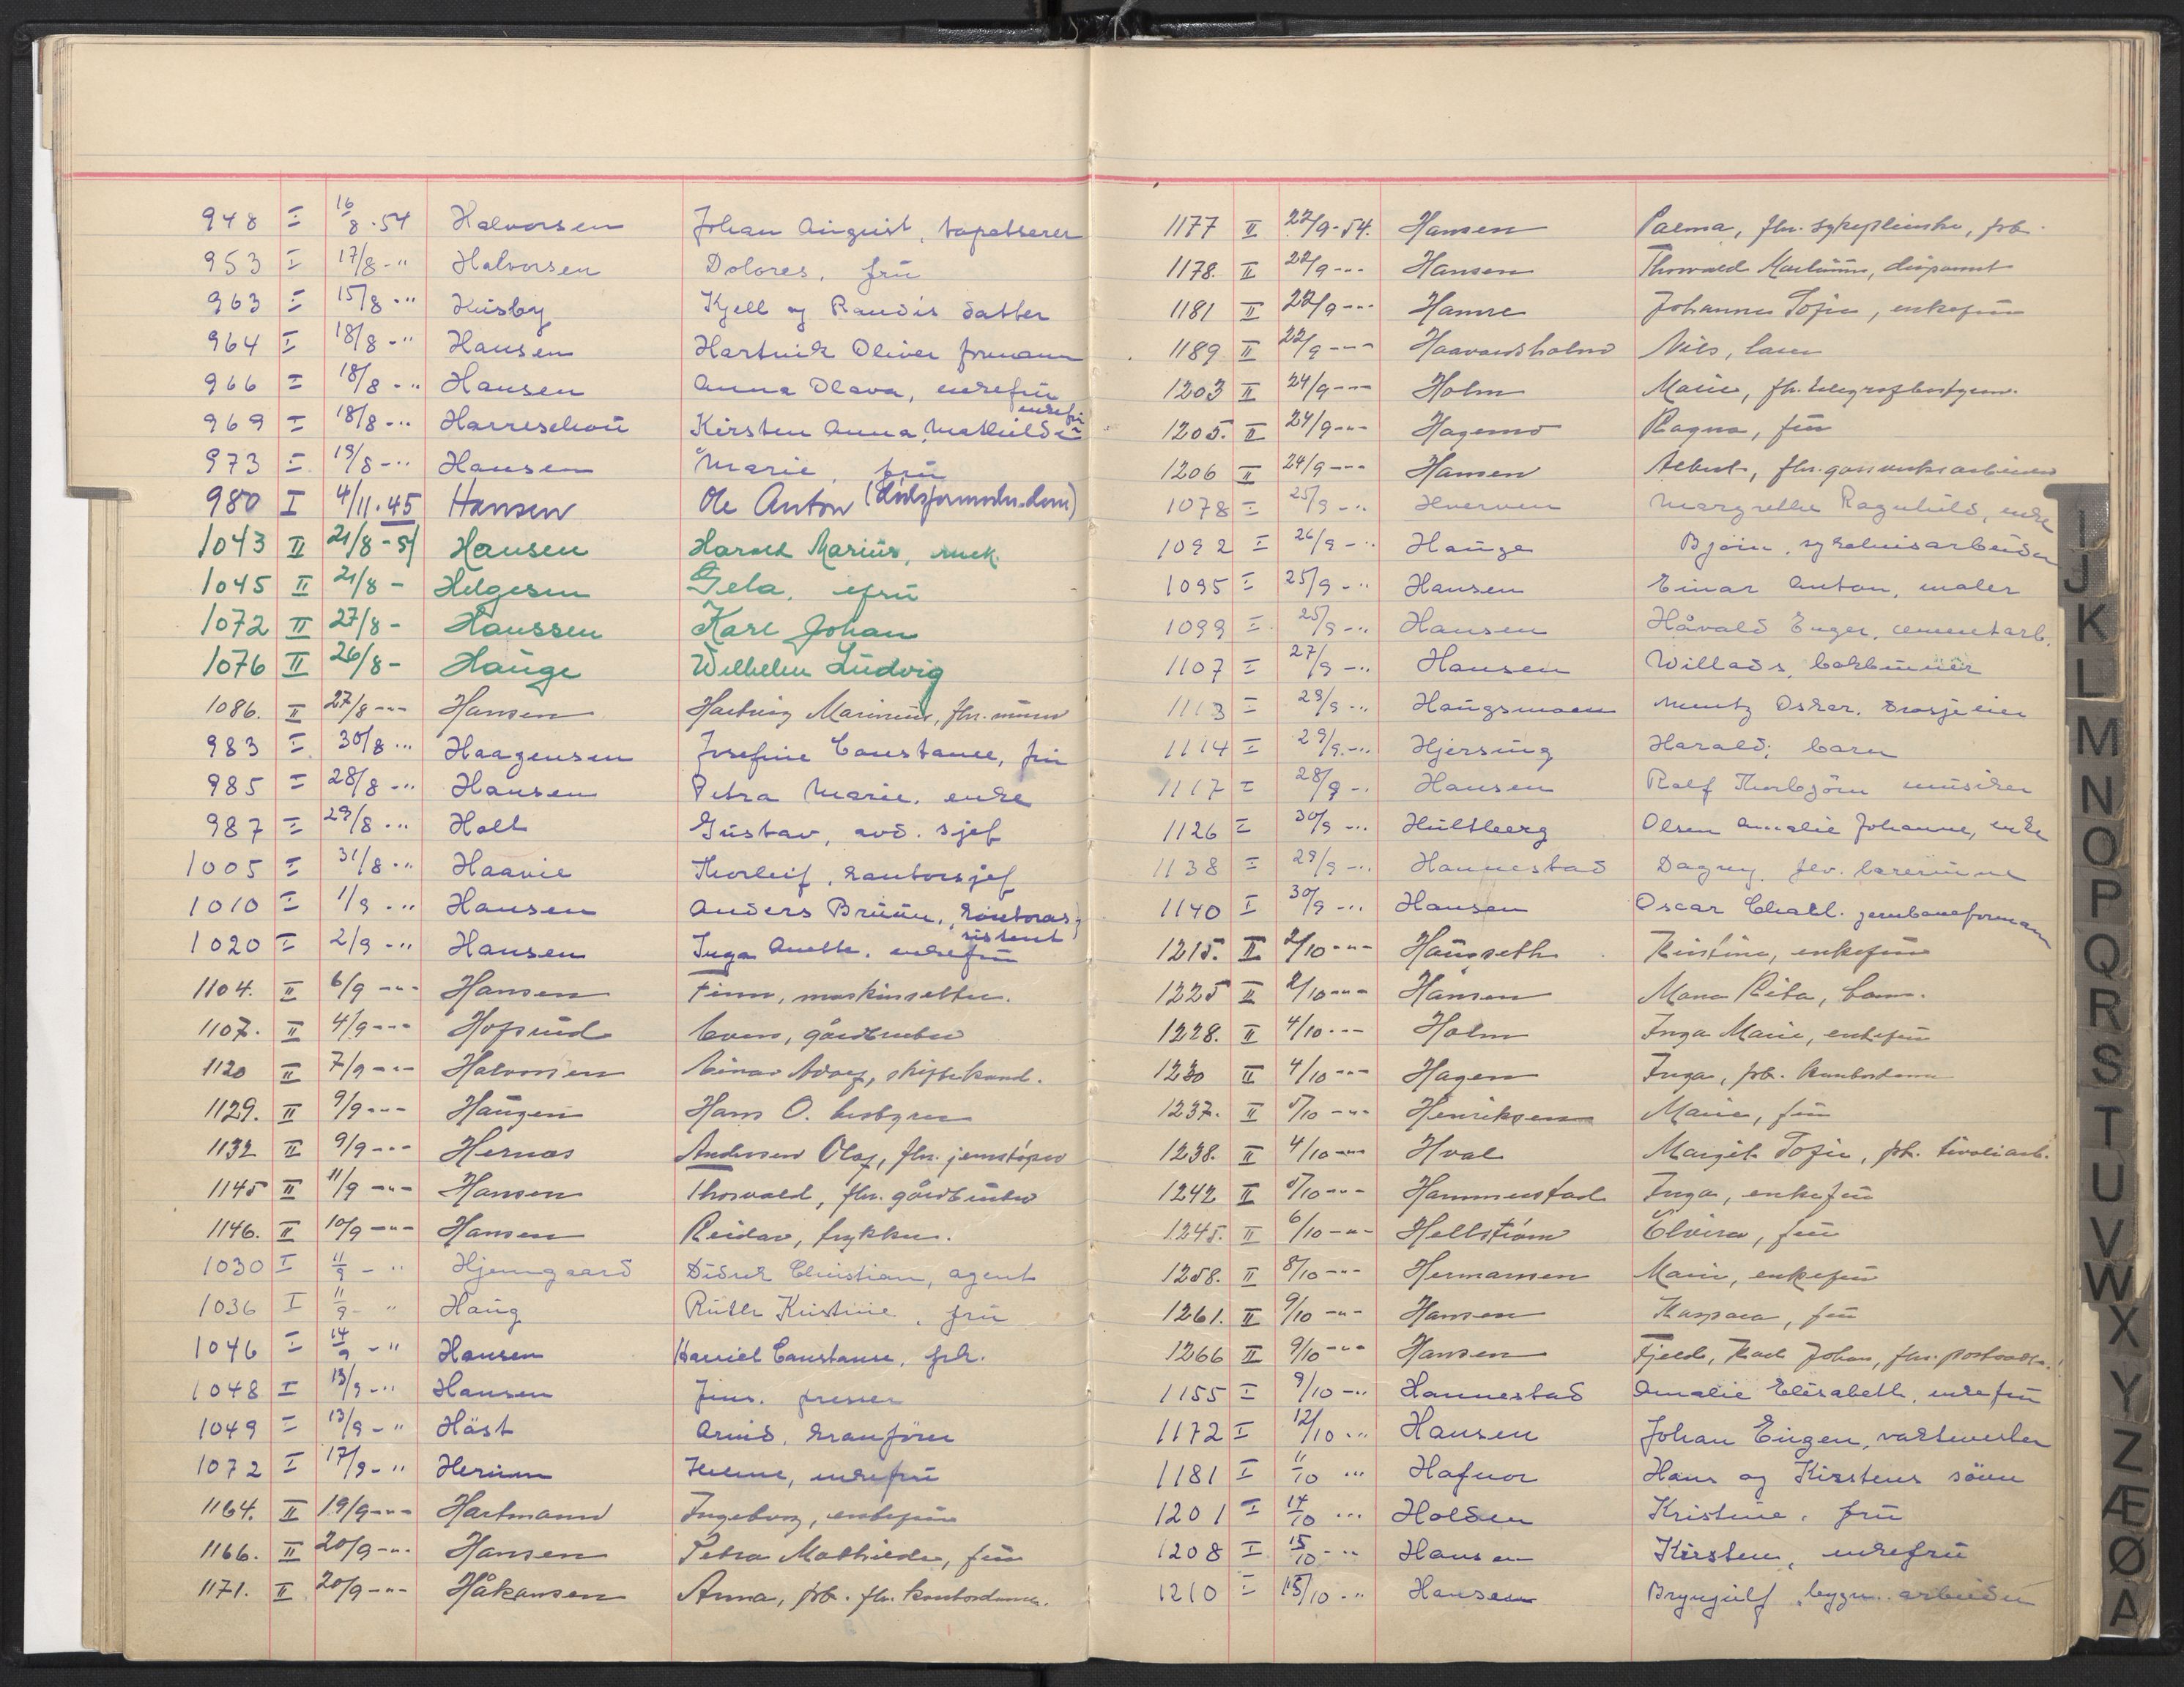 948 I 16/8.54 Halvorsen Johan August, tapetserer
953 I 17/8-" Halvorsen Dolores, frü
963 I 15/8-" Husby Kjell og Randis datter
964 I 18/8-" Hansen Hartvik Oliver formann
966 I 18/8-" Hansen Anna Olava, enkefrü
969 I 18/8-" Harreschou Kirsten Anna Mathilde enkefrü
973 I 19/8-" Hansen Marie, frü
980 I 4/11.45 Hansen Ole Anton (dødsformodn.dom)
1043 II 21/8-54 Hansen Harald Marius, mek.
1045 II 21/8- Helgesen Gela, efrü
1072 II 27/8- Hanssen Karl Johan
1076 II 26/8- Hauge Wilhelm Ludvig
1086. II 27/8-"- Hansen Hartvig Marinius, fhv. murer
983 I 30/8-" Haagensen Josefine Constance, frü
985 I 28/8-" Hansen Petra Marie, enke
987 I 29/8-" Holt Gustav, avd. sjef
1005 I 31/8-" Haavie Thorleif, kontorsjef
1010 I 1/9-" Hansen Anders Bruun, kontoras-
sistent
1020 I 2/9-" Hansen Inga Anette, enkefrü
1104. II 6/9-"- Hansen Finn, maskinsetter.
1107. II 4/9-"- Hofsrud Even, gårdbruker
1120 II 7/9-"- Halvorsen Einar Adolf, skipskand.
1129. II 9/9-"- Haugen Hans O.
1132 II 9/9-"- Hernas Andersen Olaf, fhv. jernstøper
1145 II 11/9-"- Hansen Thorvald, fhv. gårdbruker
1146. II 10/9-"- Hansen Reidar, trykker.
1030 I 11/9-" Hjemgaard Didrik Christian, agent
1036 I 11/9-" Haug Ruth Kristine, frü
1046 I 14/9-" Hansen Harriet Constance, frk.
1048 I 13/9-" Hansen Jens, presser
1049 I 13/9-" Häst Arvid, kranfører
1072 I 17/9-" Herum Helene, enkefrü
1164. II 19/9-"- Hartmann Ingeborg, enkefrü
1166. II 20/9-"- Hansen Petra Mathilde, frü
1171. II 20/9-"- Håkansen Anna, frk. fhv. kontordame.
1177 II 22/9-54. Hansen Palma, fhv. sykepleierske, frk.
1178. II 22/9-"- Hansen Thorvald Martinius, disponent
1181 II 22/9-"- Hamre Johanne Sofie, enkefrü
1189 II 22/9-"- Haavardsholm Nils, barn
1203 II 24/9-"- Holm Marie, fhv. telegrafbestyrer.
1205. II 24/9-"- Hagemo Ragna, frü
1206 II 24/9-"- Hansen Albert, fhv. gassverksarbeider
1078 I 25/9-" Hverven Margrethe Ragnhild, enke
1092 I 26/9-" Hauge Bjørn, sykehusarbeider
1095 I 25/9-" Hansen Einar Anton, maler
1099 I 25/9-" Hansen Håvald Enger, cementarb.
1107 I 27/9-" Hansen Willads, bokbinder
1113 I 29/9-" Haugsmoen Muntz Oskar, drosjeeier
1114 I 29/9-" Hjersing Harald, barn
1117 I 28/9-" Hansen Ralf Thorbjörn musiker
1126 I 30/9-" Hultberg Olsen Amalie Johanne, enke
1138 I 29/9-" Hannestad Dagny, fhv. lærerinne
1140 I 30/9-" Hansen Oscar Charl. jernbaneformann
1215. II 2/10-"- Haugseth Kristine, enkefrü
1225 II 2/10-"- Hansen Mona Rita, barn.
1228. II 4/10-"- Holm Inga Marie, enkefrü
1230 II 4/10-"- Hagen Inga, frk. kontordame
1237. II 5/10-"- Henriksen Marie, frü
1238. II 4/10-"- Hval Margit Sofie, frk. tivoliarb.
1242 II 5/10-"- Hammerstad Inga, enkefrü
1245. II 6/10-"- Hellstrøm Elvira, frü
1258. II 8/10-"- Hermansen Marie, enkefrü
1261. II 9/10-"- Hansen Kaspara, frü
1266 II 9/10-"- Hansen Fjeld, Karl Johan, fhv.
1155 I 9/10-" Hannestad Amalie Elisabeth, enkefrü
1172 I 12/10-" Hansen Johan Eugen, vaktmester
1181 I 11/10 " Hafnor Hans og Kirstens sønn
1201 I 14/10 " Holden Kristine, frü
1208 I 15/10-" Hansen Kirsten, enkefrü
1210 I 15/10-" Hansen Brynjulf, bygn. arbeider
I
J
K
L
M
N
O
P
Q
R
S
T
U
V
W
X
Y
Z
Æ
Ø
A